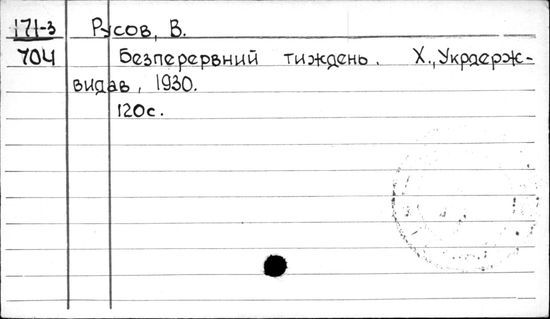 171-3 Русов, В.
704 Безперервний тиждень. Х., Укрдерж-
видав, 1930.
120с.